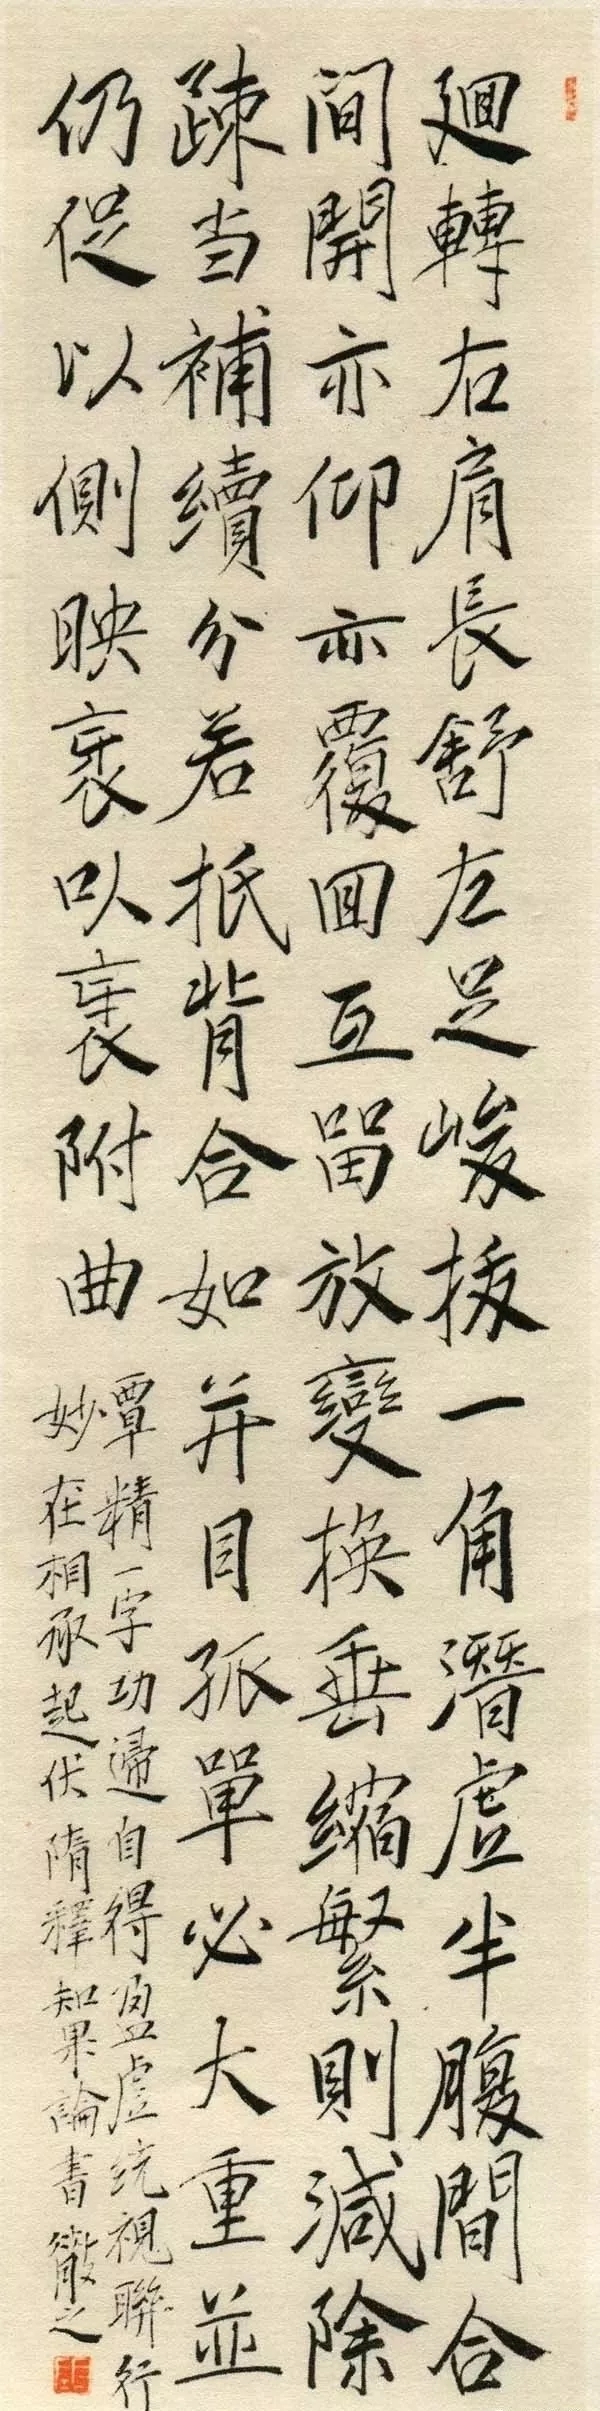 廻轉右肩長舒左足峻拔一角潛虛半腹間合
間開亦仰亦覆回互留放變換垂縮繁則減除
疎当補續分若抵背合如并目孤單必大重並
仍促以側映裹以裹附曲
覃精一字功歸自得盈虛统視聯行
妙在相承起伏隋釋智果論書徽之